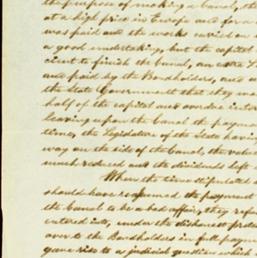 the purpose of making a Canal, th
at a high price in Europe and for a
was paid and the works carried on
a good undertaking, but the capital
cient to finish the Canal, an extra L
was paid by the Bondholders, and
the State Government that they
half of the capital and overdue inter
leaving upon the Canal the paym
time, the Legislature of the State having
way on the side of the Canal, the value
much reduced and the dividends left
When the time stipulated
should have resumed the payment
the Canal to be a bad affair, they refu
entered into, under the dishonest prete
over to the Bondholders in full payme
gave rise to a judicial question which